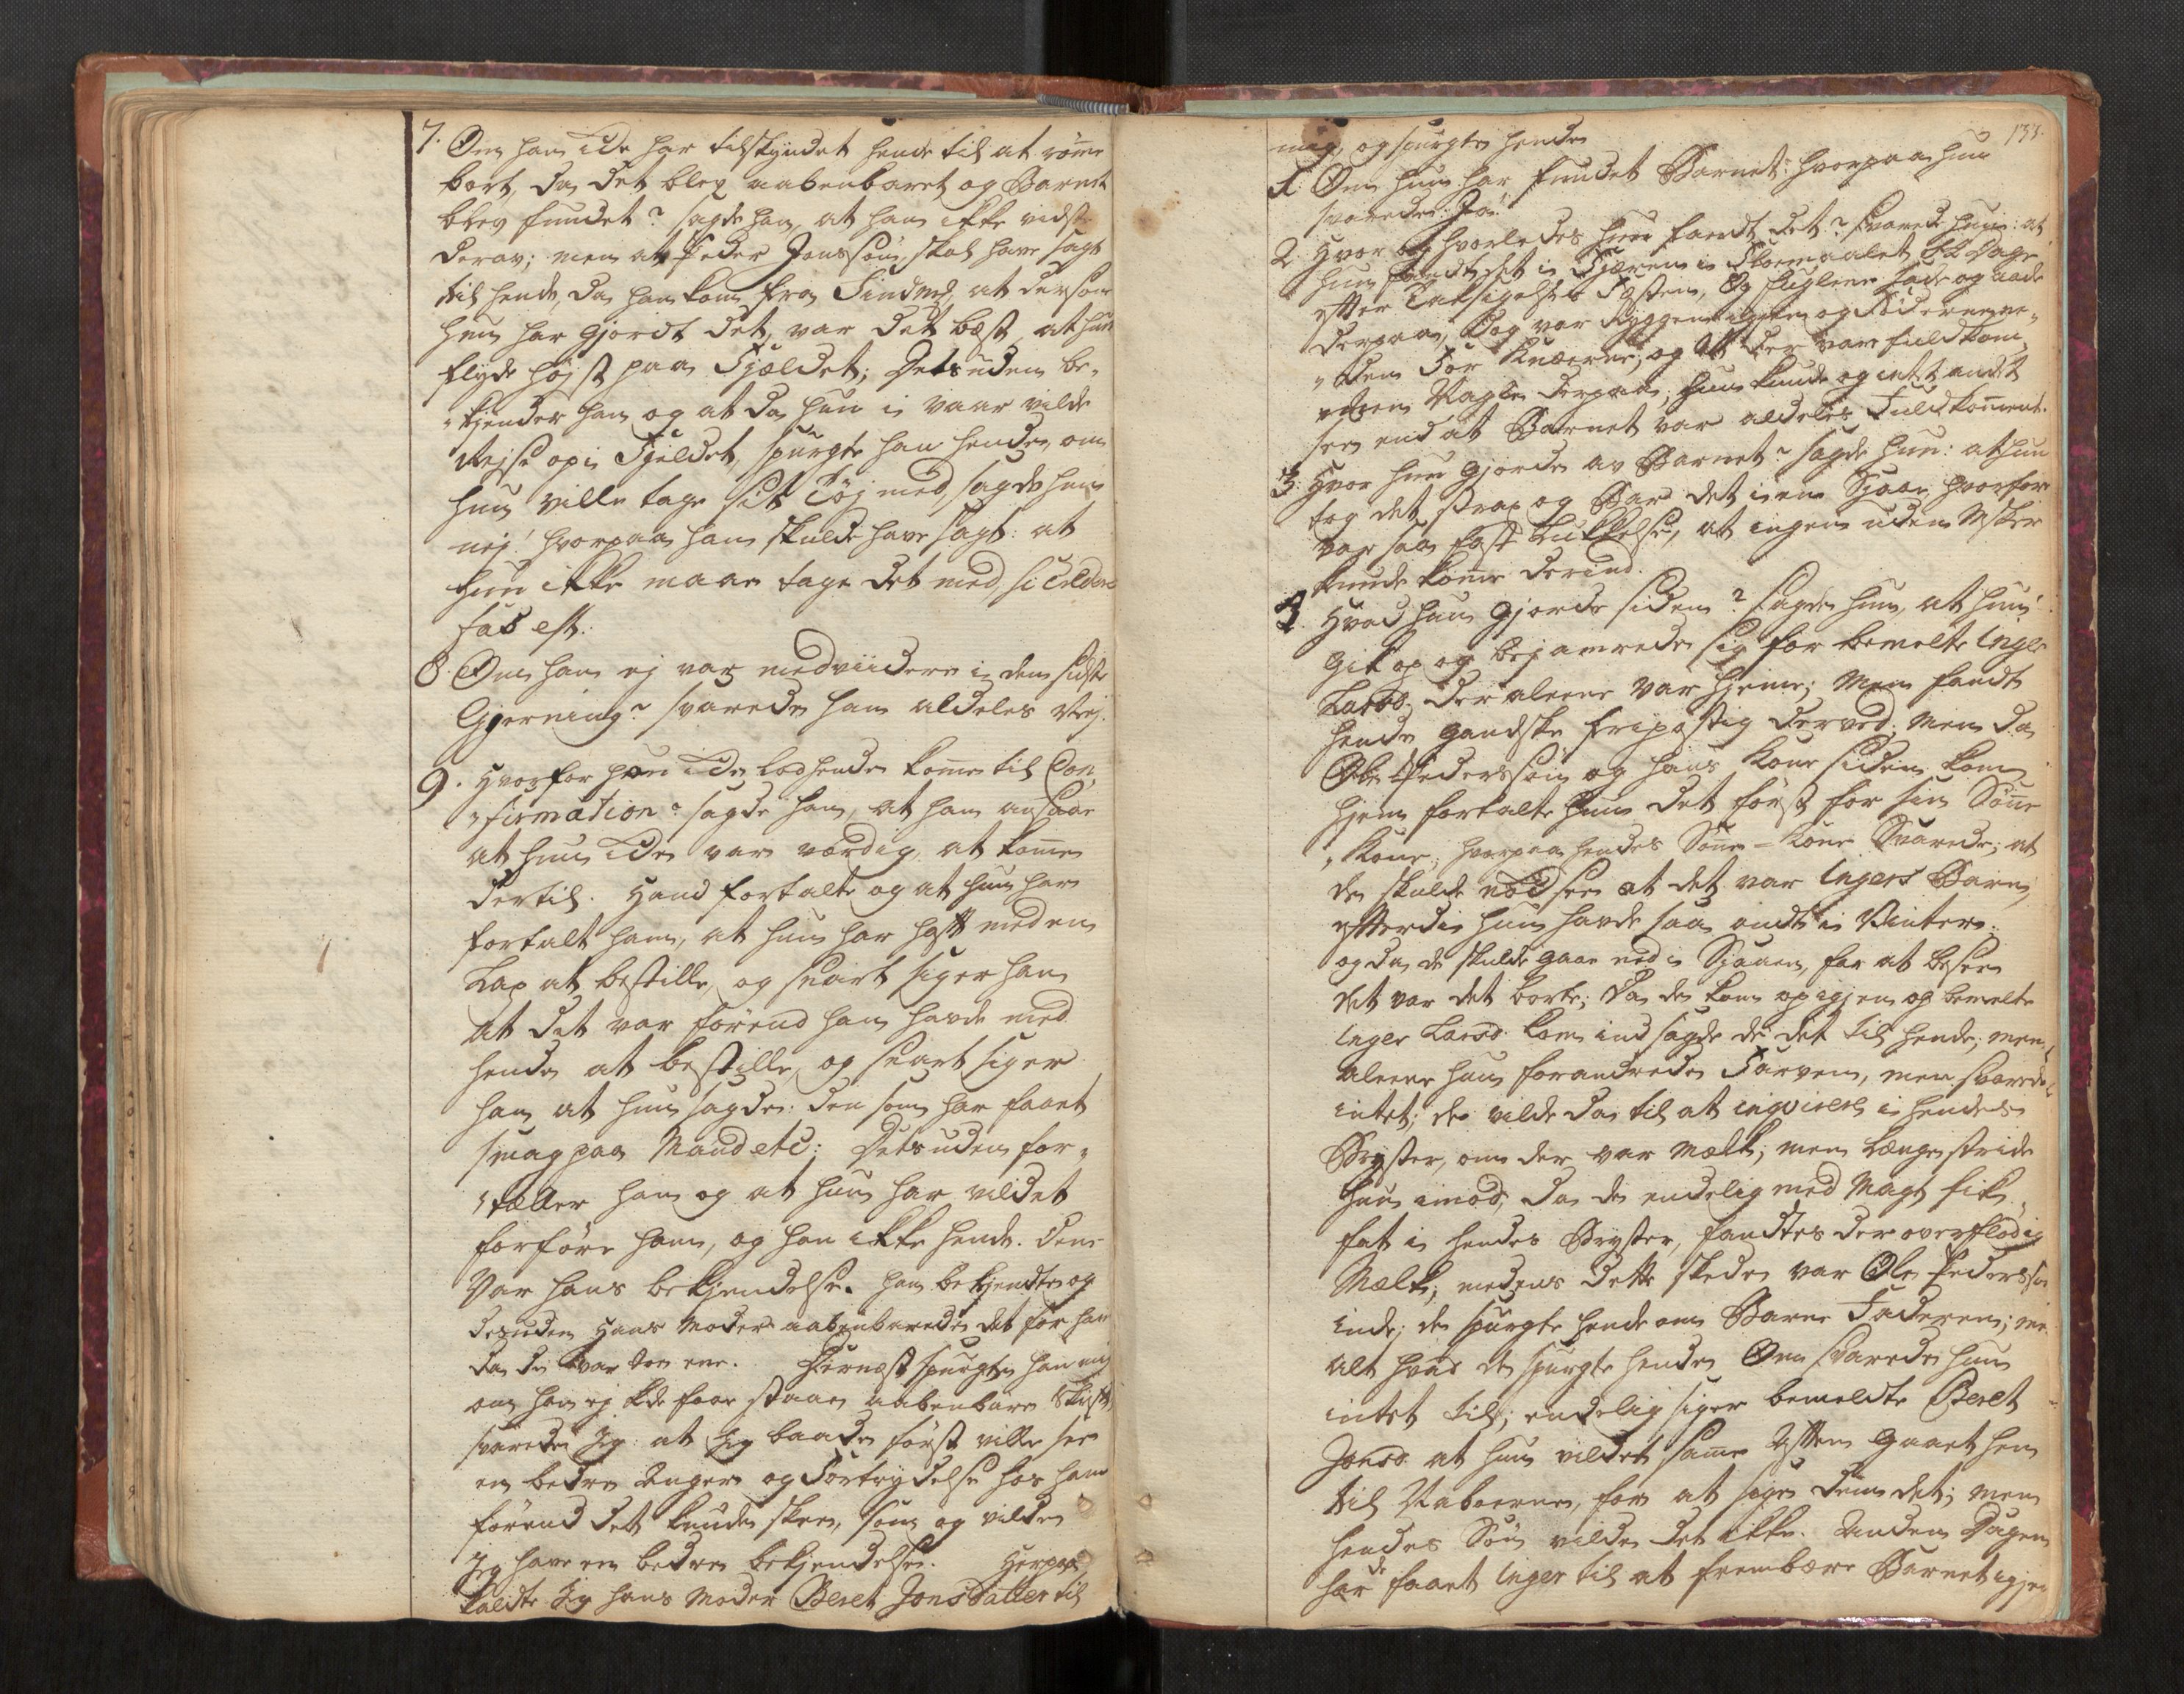 7. Om han ikke har tilskyndet hende til at røme
bort, da det blev aabenbaret og Barnet
blev fundet? sagde han, at han ikke vidste
derav; men at Peder Jonssøn skal have sagt
til hende, da han kom fra Findmd, at dersom
hun har gjordt det, var det bæst at hun
flyde højst paa Fjældet; Desuden be-
„kjender han og at da hun i vaar vilde
Rejse op i Fjeldet, spurgte han hende, om
hun ville tage sit Tøj med, sagde hun
nej! hvorpaa han skulde have sagt: at
hun ikke maae tage det med, si
fas est.
8. Om han ej var medviidere i den sidste
Gjerning? svarede han aldeles Nej.
9. Hvorfor han ikke lod hende komme til Con„
„firmation? sagde han, at han ansaae
at hun ikke var værdig at komme
dertil. Hand fortalte og at hun har
fortalt ham, at hun har haft med en
Lap at bestille, og snart siger han
at det var førend han havde med
hende at bestille, og snart siger
han at hun sagde: den som har faaet
smag paa Mand etc: Desuden for„
„tæller han og at hun har vildet
forføre ham, og han ikke hende. Denne
Var hans bekjendelse. han bekjendte og
desuden Hans Moder aabenbarede det for ham
da de var toe ene. Dernæst spurgte han mig
om han ej kde faae staae aabenbare Skrifte
svarede Jeg: at Jeg baade først ville see
en bedre Anger og Fortrydelse hos ham
førend det kunde skee, som og vilde
Jeg have en bedre bekjendelse. Herpaa
kaldte Jeg hans Moder Beret Jonsdatter til
133.
mig, og spurgte hende
1. Om hun har fundet Barnet: hvorpaa hun
svarede: Ja!
2 Hvor og hvorledes hun fandt det? svarede hun: at
hun fandt det i Fjæren i Floemaalet 12 Dage
efter Festen, Og fuglene sade og aade
derpaa, dog var Ryggen igjen og Føderne ne„
„den For Knæerne, og at der vare fuldkom„
„mene Nagle derpaa; hun kunde og intet andet
see end at Barnet var aldeles Fuldkomment.
3. Hvor hun gjorde av Barnet? sagde hun: at hun
tog det strax og Bar det i en Sjaae hvorfor
var saa fast Lukkelse, at ingen uden
kunde komme derind.
4. Hvad hun gjorde siden? sagde hun, at hun
gik op og bejamrede sig for bemelte Inger
Larsd. der aleene var hjeme; men fandt
hende gandske fripostig derved; men da
Ole Pederssøn og hans Kone siden kom
hjem fortalte hun det først for sin Sønne
„Kone, hvorpaa hendes Sønne-Kone Svarede; at
de skulde nød see at det var Ingers Barn,
efterdi hun havde saa ondt i Vinter;
og da de skulde gaae ned i Sjaaen, for at besee
det var det borte; Da de kom op igjen og bemelte
Inger Larsd. kom ind sagde de det til hende; men
aleene hun forandrede Farven, men svarede
intet; de vilde da til at inqvirere i hendes
Bryster, om der var Mælk, men længe stride
hun imod, da de endelig med Magt fik
fat i hendes Bryster, fandtes der overflødig
Mælk; medens dette skede var Ole Pederssøn
inde; de spurgte hende om Barne Faderen; me
alt hvad de spurgte hende Om svarede hun
intet til; endelig siger bemeldte Beret
Jonsd. at hun vildet samme Aften gaaet hen
til Naboerne, for at sige dem det; men
hendes Søn vilde det ikke. Anden Dagen
har de faaet Inger til at frembære Barnet igjen